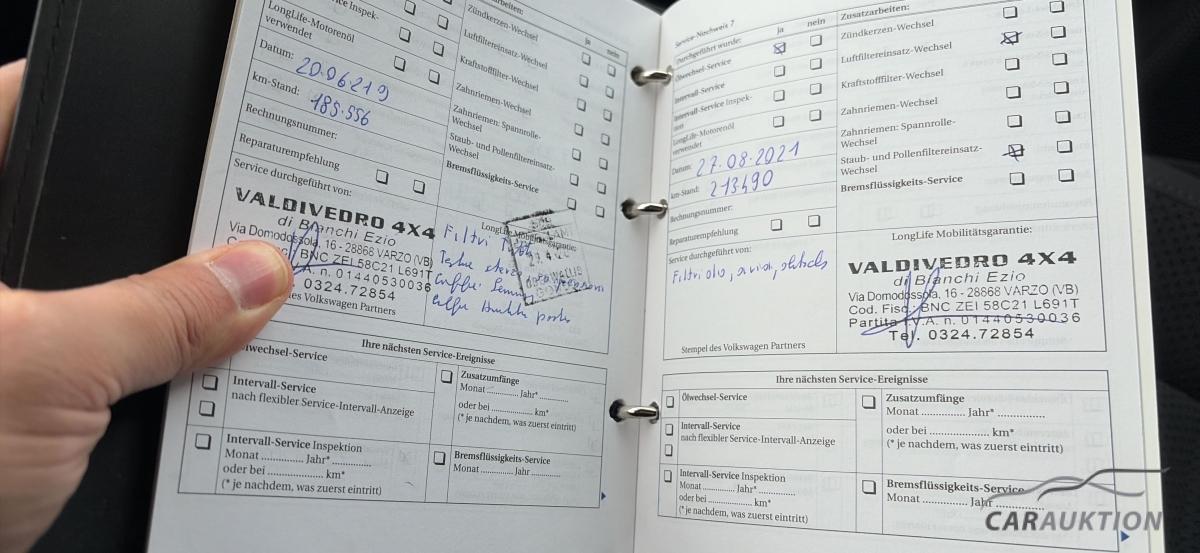 ce Inspek-
LongLife-Motorenöl
verwendet
Datum: 20.06219
km-Stand: 185.556
Rechnungsnummer:
Reparaturempfehlung
Service durchgeführt von:
VALDIVEDRO 4X4
di Bianchi Ezio
Via Domodossola, 16 - 28868 VARZO (VB)
BNC ZEI 58C21 L691T
A. n. 01440530036
0324.72854
des Volkswagen Partners
arbeiten:
ja nein
Zündkerzen-Wechsel
Luftfiltereinsatz-Wechsel
Kraftstofffilter-Wechsel
Zahnriemen-Wechsel
Zahnriemen: Spannrolle-
Wechsel
Staub- und Pollenfiltereinsatz-
Wechsel
Bremsflüssigkeits-Service
LongLife Mobilitätsgarantie:
Filtri
Ihre nächsten Service-Ereignisse
Ölwechsel-Service
Intervall-Service
nach flexibler Service-Intervall-Anzeige
Intervall-Service Inspektion
Monat .............. Jahr* ..............
oder bei .................... km*
(* je nachdem, was zuerst eintritt)
Zusatzumfänge
Monat .............. Jahr* ..............
oder bei .................... km*
(* je nachdem, was zuerst eintritt)
Bremsflüssigkeits-Service
Monat .............. Jahr ..............
Service-Nachweis 7
Durchgeführt wurde: ja nein
Ölwechsel-Service
Intervall-Service
Intervall-Service Inspek-
tion
LongLife-Motorenöl
verwendet
Datum: 27.08.2021
km-Stand: 213490
Rechnungsnummer:
Reparaturempfehlung
Service durchgeführt von:
Filtri olio, aria,
Stempel des Volkswagen Partners
Zusatzarbeiten:
Zündkerzen-Wechsel
Luftfiltereinsatz-Wechsel
Kraftstofffilter-Wechsel
Zahnriemen-Wechsel
Zahnriemen: Spannrolle-
Wechsel
Staub- und Pollenfiltereinsatz-
Wechsel
Bremsflüssigkeits-Service
LongLife Mobilitätsgarantie:
VALDIVEDRO 4X4
di Bianchi Ezio
Via Domodossola, 16 - 28868 VARZO (VB)
Cod. Fisc. BNC ZEI 58C21 L691T
Partita I.V.A. n. 01440530036
Tel. 0324.72854
Ihre nächsten Service-Ereignisse
Ölwechsel-Service
Intervall-Service
nach flexibler Service-Intervall-Anzeige
Intervall-Service Inspektion
Monat .............. Jahr* ..............
oder bei .................... km*
(* je nachdem, was zuerst eintritt)
Zusatzumfänge
Monat .............. Jahr* ..............
oder bei .................... km*
(* je nachdem, was zuerst eintritt)
Bremsflüssigkeits-Service
Monat .............. Jahr ..............
CARAUKTION